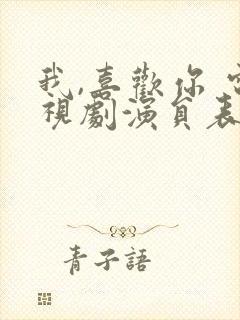 我,喜歡你
視劇演員表
青子語